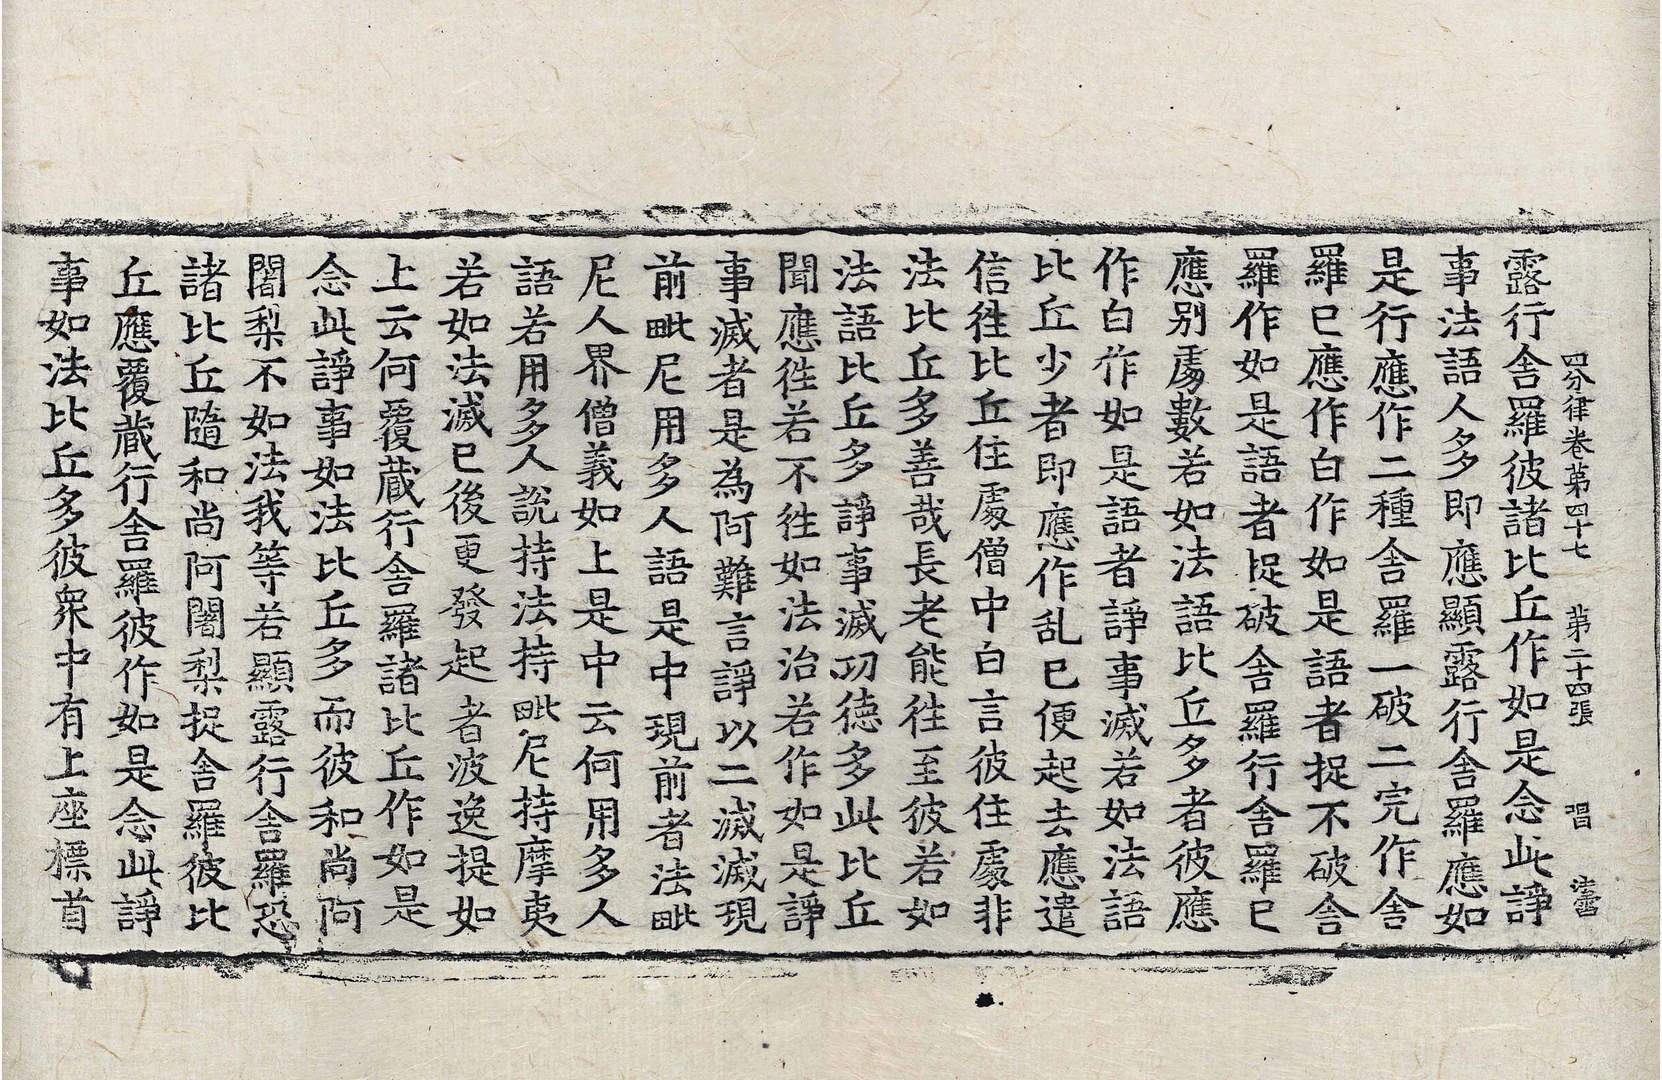 四分律卷第四十七 第二十四張 唱
露行舍羅彼諸比丘作如是念此諍
事法語人多即應顯露行舍羅應如
是行應作二種舍羅一破二完作舍
羅已應作白作如是語者捉不破舍
羅作如是語者捉破舍羅行舍羅已
應別處數若如法語比丘多者彼應
作白作如是語者諍事滅若如法語
比丘少者即應作乱已便起去應遣
信往比丘住處僧中白言彼住處非
法比丘多善哉長老能往至彼若如
法語比丘多諍事滅功德多此比丘
聞應往若不往如法治若作如是諍
事滅者是為阿難言諍以二滅滅現
前毗尼用多人語是中現前者法毗
尼人界僧義如上是中云何用多人
語若用多人說持法持毗尼持摩夷
若如法滅已後更發起者波逸提如
上云何覆藏行舍羅諸比丘作如是
念此諍事如法比丘多而彼和尚阿
闍梨不如法我等若顯露行舍羅恐
諸比丘隨和尚阿闍梨捉舍羅彼比
丘應覆藏行舍羅彼作如是念此諍
事如法比丘多彼眾中有上座標首